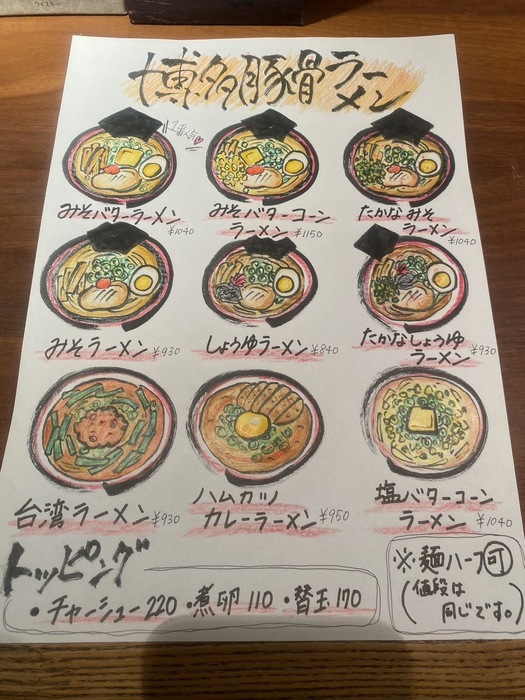 ウイスキー
博多豚骨ラーメン
1番人気
みそバターラーメン
¥1040
みそバターコーン
ラーメン ¥1150
たかなみそ
ラーメン
¥1040
みそラーメン ¥930
しょうゆラーメン ¥840
たかなしょうゆ
ラーメン ¥930
台湾ラーメン ¥930
ハムカツ
カレーラーメン ¥950
塩バターコーン
ラーメン ¥1040
トッピング
・チャーシュー220 ・煮卵110 ・替玉170
※麺ハーフ可
(値段は
同じです。)